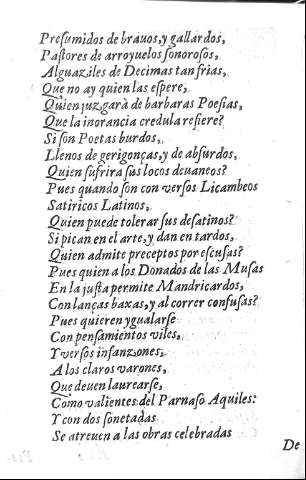 Presumidos de brauos, y gallardos,
Pastores de arroyuelos sonorosos,
Alguaziles de Decimas tan frias,
Que no ay quien las espere,
Quien juzgarà de barbaras Poesias,
Que la inorancia credula refiere?
Si son Poetas burdos,
Llenos de gerigonças, y de absurdos,
Quien sufrira sus locos deuaneos?
Pues quando son con versos Licambeos
Satiricos Latinos,
Quien puede tolerar sus desatinos?
Si pican en el arte, y dan en tardos,
Quien admite preceptos por escusas?
Pues quien a los Donados de las Musas
En la justa permite Mandricardos,
Con lanças baxas, y al correr confusas?
Pues quieren ygualarse
Con pensamientos viles,
Y versos infanzones,
A los claros varones,
Que deuen laurearse,
Como valientes del Parnaso Aquiles:
Y con dos sonetadas
Se atreuen a las obras celebradas
De